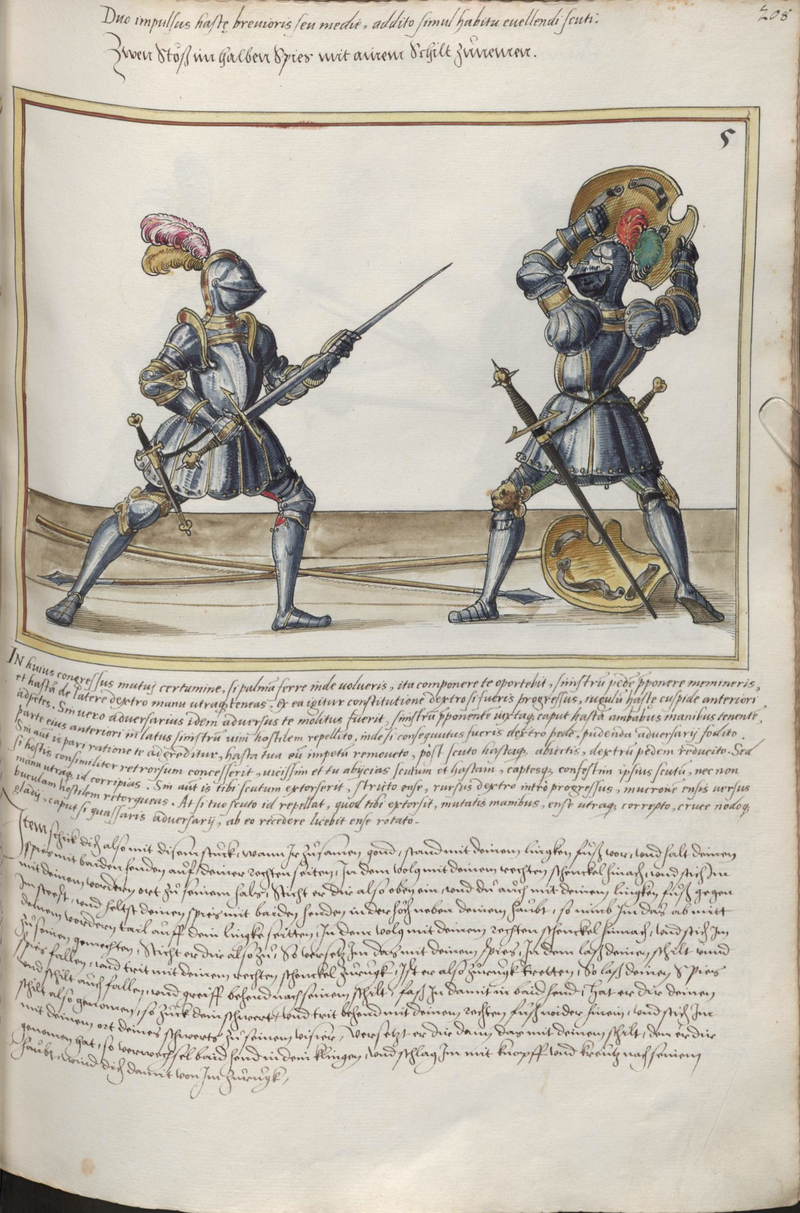 Duo impulsus hastę brevioris seu medię, addito simul habitu evellendi scuti.
208
Zwen Stöß im halben Spies mit ainem Schilt Zunemen.
5
IN huius congressus mutuj certamine, si palmã ferre inde volueris, ita componere te oportebit, sinistrũ pedẽ pponere memineris,
et hastã de latere dextro manu utraq teneas. Ex ea igitur constitutione dextro si fueris progressus, iuguli hastę cuspide anteriori
adpetes. Sin vero adversarius idem adversus te molitus fuerit, sinistrũ pponente iuxtaq caput hastã ambabus manibus tenente,
parte eius anteriori in latus sinistrũ vim hostilem repellito, inde si consequutus fueris dextro pede, pudenda adversarij fodito.
Sin aut is pari ratione te adoreditur, hasta tua eũ impetũ removeto, post scuto hastaq abiectis, dextrũ pedem reducito. Sed
si hostis consimiliter retrorsum concesserit, vicissim et tu abijcias scutum et hastam, captesq confestim ipsius scutũ, nec non
manu utraq id corripias. Sin aut is tibi scutum extorserit, stricto ense, rursus dextro intro progressus, mucronẽ ensis versus
buculam hostilem retorqueas. At si tuo scuto id repellat, quod tibi extorsit, mutatis manibus, ense utraq correpto, cruce nodoq
gladij, caput si quassaris adversarij, ab eo recedere licebit ense rotato.
Item schick dich also mit disem stuck, wann Ir zusamen gond, stand mit deinem lingken fuß vor, und halt deinen
spies mit baiden henden auf deiner rechten seiten, In dem volg mit deinem rechten schenckel hinach, und stich Im
mit deinem vordern ort zu seinem hals, Sticht er dir also oben ein, und du auch mit deinem lingken fuß gegen
Im stest, und heltst deinen spies mit baiden henden in der höch neben deinem haubt, so nimb Im das ab mitt
deinem vordern tail auff dein lingke seitten, In dem volg mit deinem rechten schenckel hinnach, und stich Im
zu seinen gemechten, Sticht er dir also zu, So versetz Im das mit deinem spies, In dem laß deinen schilt unnd
spies fallen, und trit mit deinem rechten schenckel zuruugk, Ist er also zuruugk tretten, So laß deinen Spies
und schilt auch fallen, und greiff behend nach seinem schilt, fass In damit in baid hend, hat er dir deinen
schilt also genomen, so zuck dein schwert, und trit behend mit deinem rechten fuß wider hinein, und stich Im
mit deinem ort deines schwerts zu seinem visier, Versetzt er dir dann das mit deinem schilt, den er dir
genomen hat, so verwechsel baid hend in dein klingen, und schlag Im mit knopff und kreutz nach seinem
haubt, unnd dich damit von Im zuruugk,